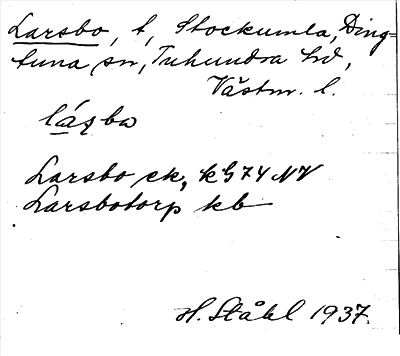 Larsbo, t, Stockumla, Ding=
tuna sn, Tuhundra hd,
Västm. l.
lása̱bo
Larsbo ek, kG74 NV
Larsbotorp kb
H. Ståhl 1937.